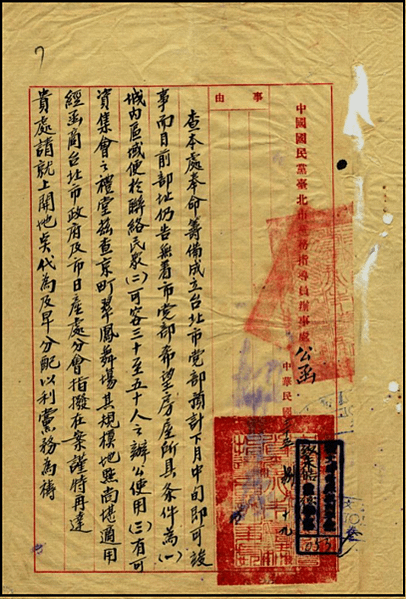 中國國民黨臺北市黨務指導員辦事處 公函
中華民國
捌
十九
事由
查本處奉命籌備成立台北市党部預計下月中旬即可竣
事而目前部址仍告無着市党部希望房屋所具条件為(一)
城内區域便於聯絡民眾(二)可容三十至五十人之辦公使用(三)有可
資集會之禮堂茲查京町翠鳳舞場其規模地點尚堪適用
經函商台北市政府及市日產處分會指撥在案謹特再達
貴處請就上開地奌代為及早分配以利黨務為禱